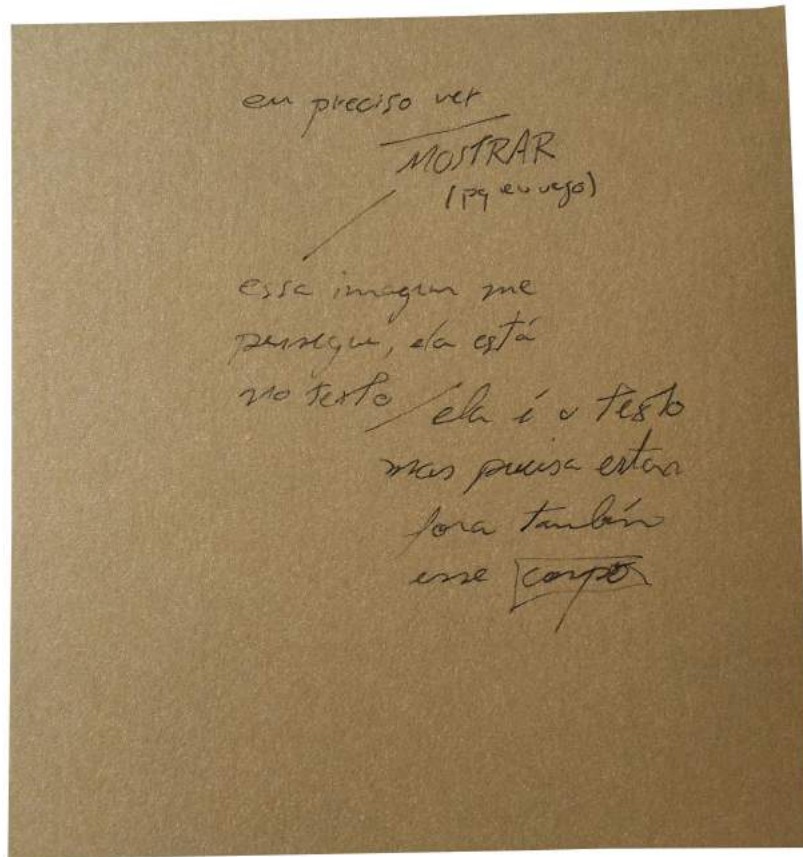 eu preciso ver
MOSTRAR
(pq eu vejo)
essa imagem me
persegue, ela está
no texto / ela é o texto
mas precisa estar
fora também
esse corpo